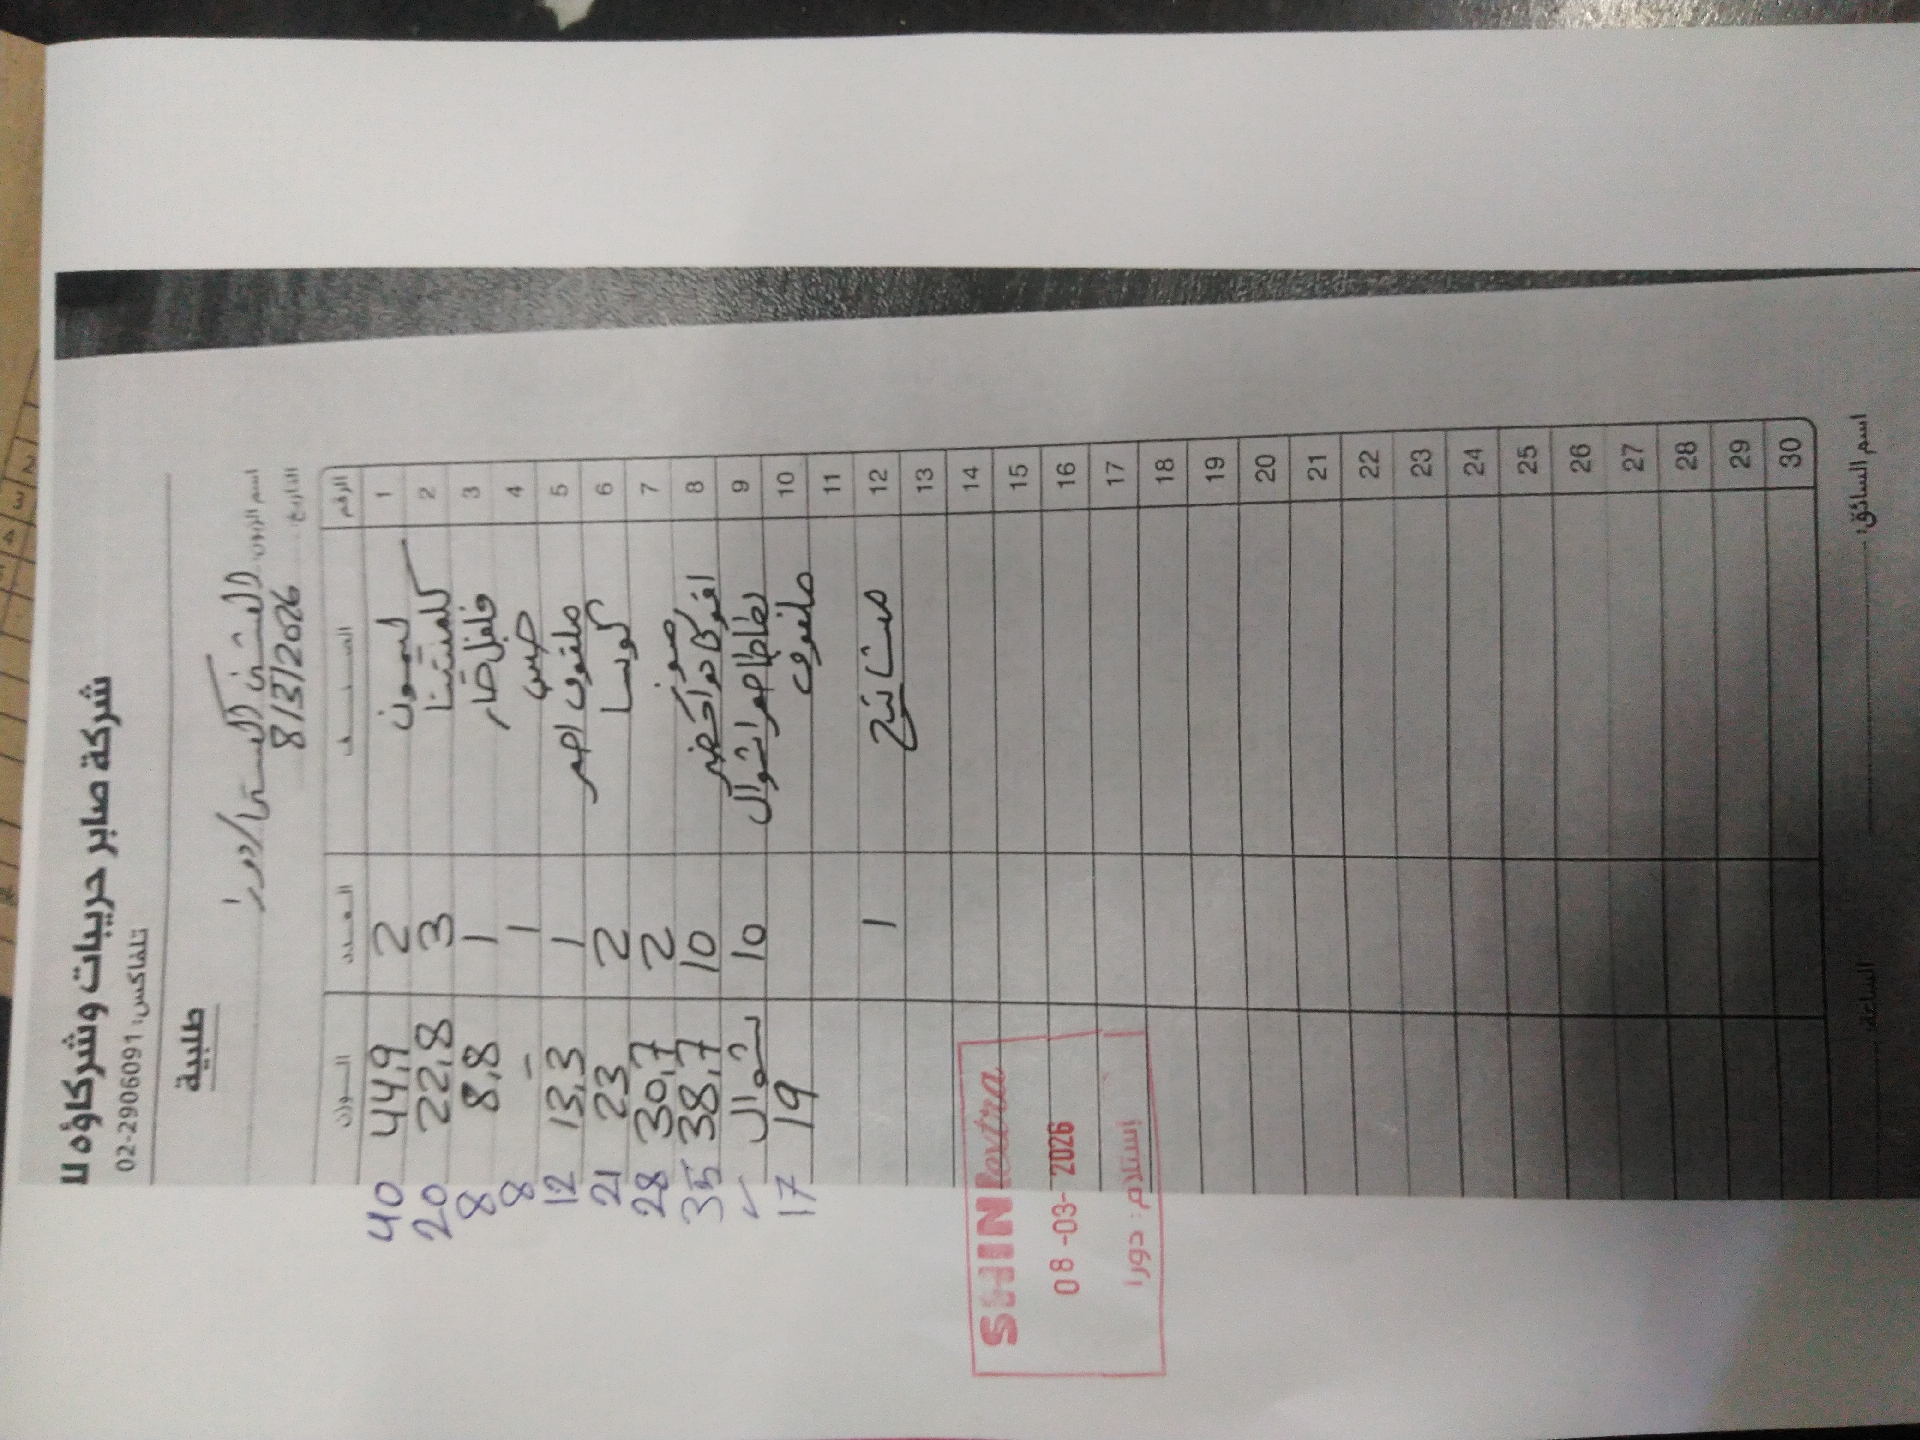 شركة صابر حريبات وشركاؤه لل
تلفاكس: 02-2906091
طلبية
اسم الزبون: الشني اكسترا/دورا
التاريخ: 8/3/2026
الرقم الصنف العدد الوزن
1 ليمون 2 44,9 40
2 كلمنتينا 3 22,8 20
3 فلفل حار 1 8,8 8
4 1 - 8
5 ملفوف احمر 1 13,3 12
6 كوسا 2 23 21
7 موز 2 30,7 28
8 افوكادو اخضر 10 38,7 35
9 بطاطا حمرا شوال 10 شوال ✓
10 ملفوف 19 17
11
12 1
13
14
15
16
17
18
19
20
21
22
23
24
25
26
27
28
29
30
SHINI extra
08-03-2026
إستلام: دورا
اسم السائق:
الساعة: